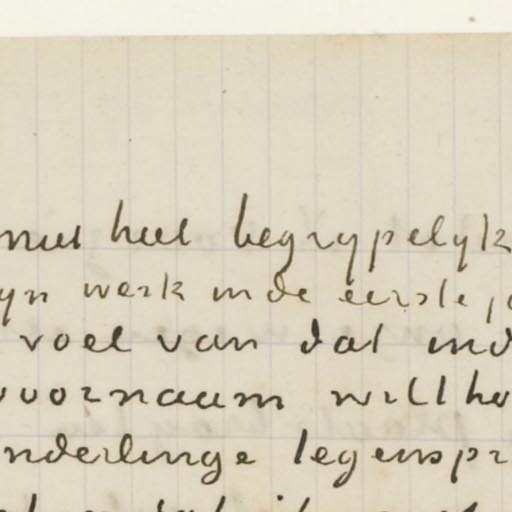 niet heel begrypelyk
yn werk in de eerste
voel van dat ind
voornaam will ho
nderlinge tegenspr